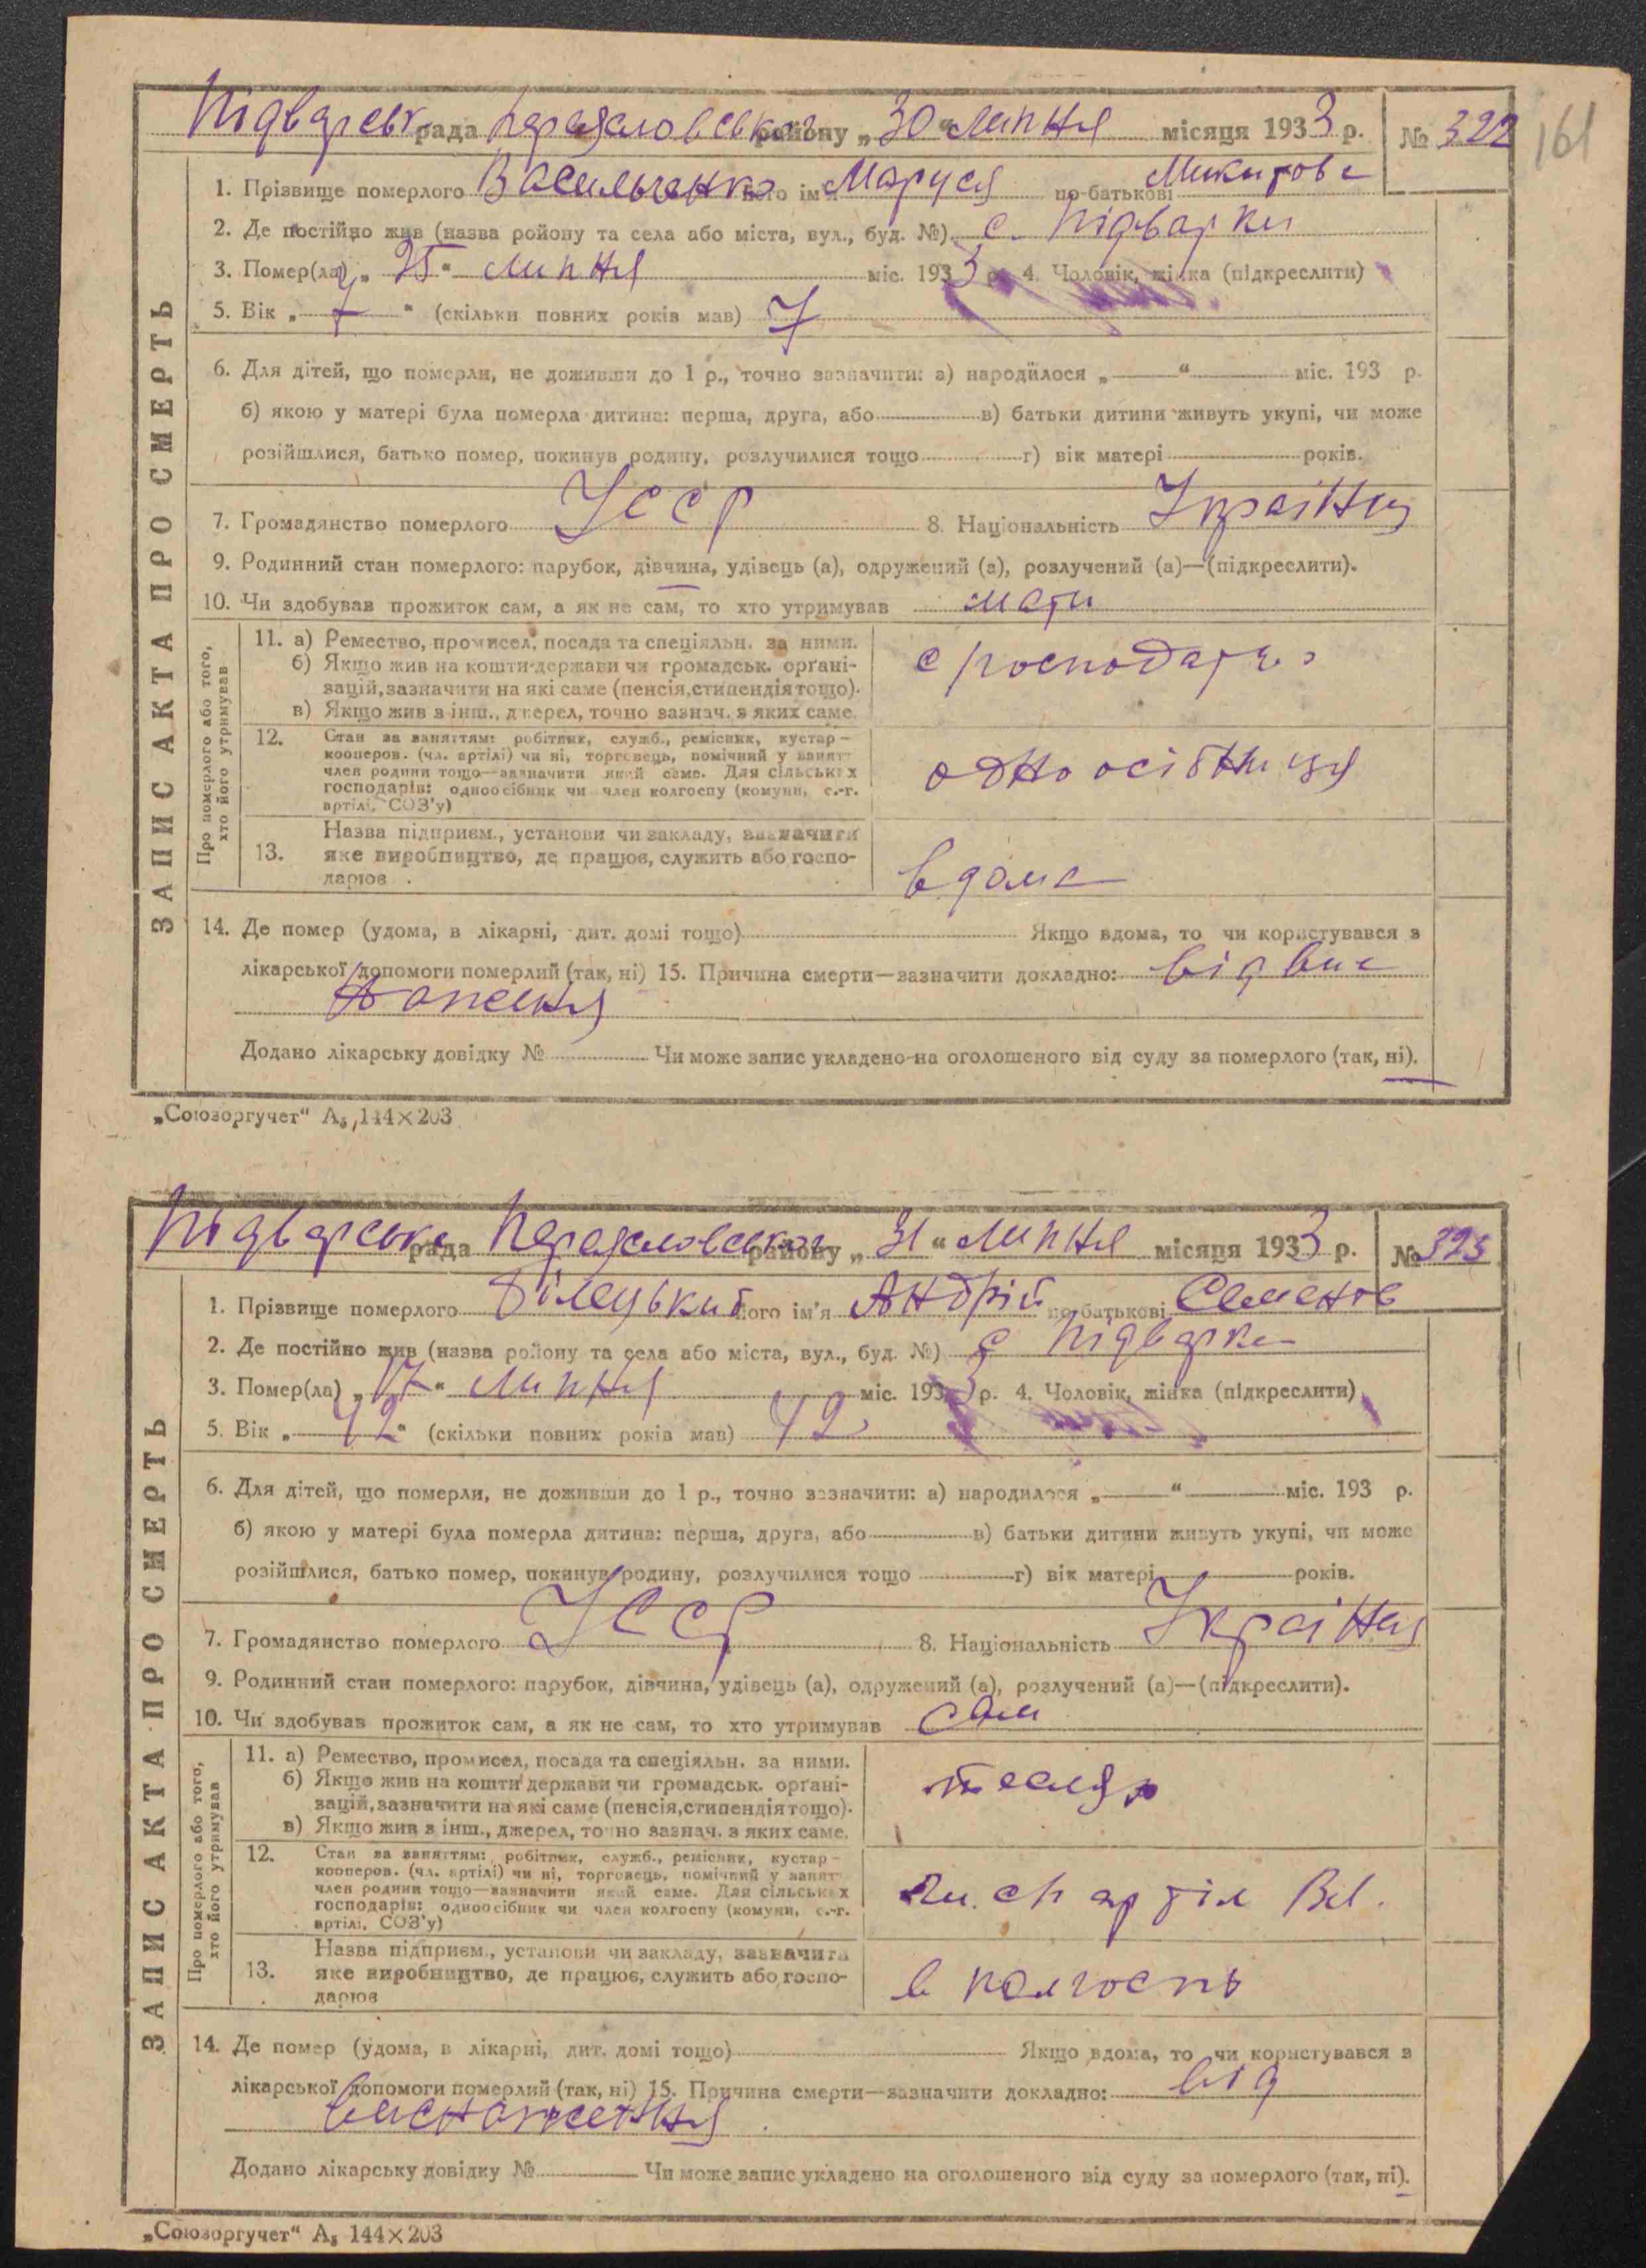 161
Підварськ рада Переясловськог району „30“ липня місяця 1933 р. № 322
ЗАПИС АКТА ПРО СМЕРТЬ
1. Прізвище померлого Васильченко його ім'я Маруся по-батькові Микитовн
2. Де постійно жив (назва ройону та села або міста, вул., буд. №) с. Підварки
3. Помер(ла) „25“ липня міс. 1933 р. 4. Чоловік, жінка (підкреслити)
5. Вік „7“ (скільки повних років мав) 7
6. Для дітей, що померли, не доживши до 1 р., точно зазначити: а) народилося „—“ міс. 193 р.
б) якою у матері була померла дитина: перша, друга, або в) батьки дитини живуть укупі, чи може
розійшлися, батько помер, покинув родину, розлучилися тощо г) вік матері років.
7. Громадянство померлого УССР 8. Національність Українц
9. Родинний стан померлого: парубок, дівчина, удівець (а), одружений (а), розлучений (а)—(підкреслити).
10. Чи здобував прожиток сам, а як не сам, то хто утримував мати
Про померлого або того, хто його утримував
11. а) Ремество, промисел, посада та спеціяльн. за ними.
б) Якщо жив на кошти держави чи громадськ. орґані-
зацій, зазначити на які саме (пенсія, стипендія тощо).
в) Якщо жив з інш., джерел, точно зазнач. з яких саме.
12. Стан за заняттям: робітник, служб., ремісник, кустар—
кооперов. (чл. артілі) чи ні, торговець, помічний у занят—
член родини тощо—зазначити який саме. Для сільських
господарів: одноосібник чи член колгоспу (комуни, с.-г.
артілі, СОЗ'у)
одноосібниця
13. Назва підприєм., установи чи закладу, зазначити
яке виробництво, де працює, служить або госпо-
дарює
вдома
14. Де помер (удома, в лікарні, дит. домі тощо) Якщо вдома, то чи користувався з
лікарської допомоги померлий (так, ні) 15. Причина смерти—зазначити докладно: від вис
наження
Додано лікарську довідку № Чи може запис укладено на оголошеного від суду за померлого (так, ні).
„Союзоргучет“ А₅, 144×203
Підварська рада Переясловськог району „31“ липня місяця 1933 р. № 323
ЗАПИС АКТА ПРО СМЕРТЬ
1. Прізвище померлого Білецький його ім'я Андрій по-батькові Семенов
2. Де постійно жив (назва ройону та села або міста, вул., буд. №) с Підварки
3. Помер(ла) „17“ липня міс. 1933 р. 4. Чоловік, жінка (підкреслити)
5. Вік „42“ (скільки повних років мав) 42
6. Для дітей, що померли, не доживши до 1 р., точно зазначити: а) народилося „—“ міс. 193 р.
б) якою у матері була померла дитина: перша, друга, або в) батьки дитини живуть укупі, чи може
розійшлися, батько помер, покинув родину, розлучилися тощо г) вік матері років.
7. Громадянство померлого УССР 8. Національність Українц
9. Родинний стан померлого: парубок, дівчина, удівець (а), одружений (а), розлучений (а)—(підкреслити).
10. Чи здобував прожиток сам, а як не сам, то хто утримував сам
Про померлого або того, хто його утримував
11. а) Ремество, промисел, посада та спеціяльн. за ними.
б) Якщо жив на кошти держави чи громадськ. орґані-
зацій, зазначити на які саме (пенсія, стипендія тощо).
в) Якщо жив з інш., джерел, точно зазнач. з яких саме.
тесляр
12. Стан за заняттям: робітник, служб., ремісник, кустар—
кооперов. (чл. артілі) чи ні, торговець, помічний у занят—
член родини тощо—зазначити який саме. Для сільських
господарів: одноосібник чи член колгоспу (комуни, с.-г.
артілі, СОЗ'у)
артіл
13. Назва підприєм., установи чи закладу, зазначити
яке виробництво, де працює, служить або госпо-
дарює
в колгоспь
14. Де помер (удома, в лікарні, дит. домі тощо) Якщо вдома, то чи користувався з
лікарської допомоги померлий (так, ні) 15. Причина смерти—зазначити докладно: від
виснаження
Додано лікарську довідку № Чи може запис укладено на оголошеного від суду за померлого (так, ні).
„Союзоргучет“ А₅ 144×203